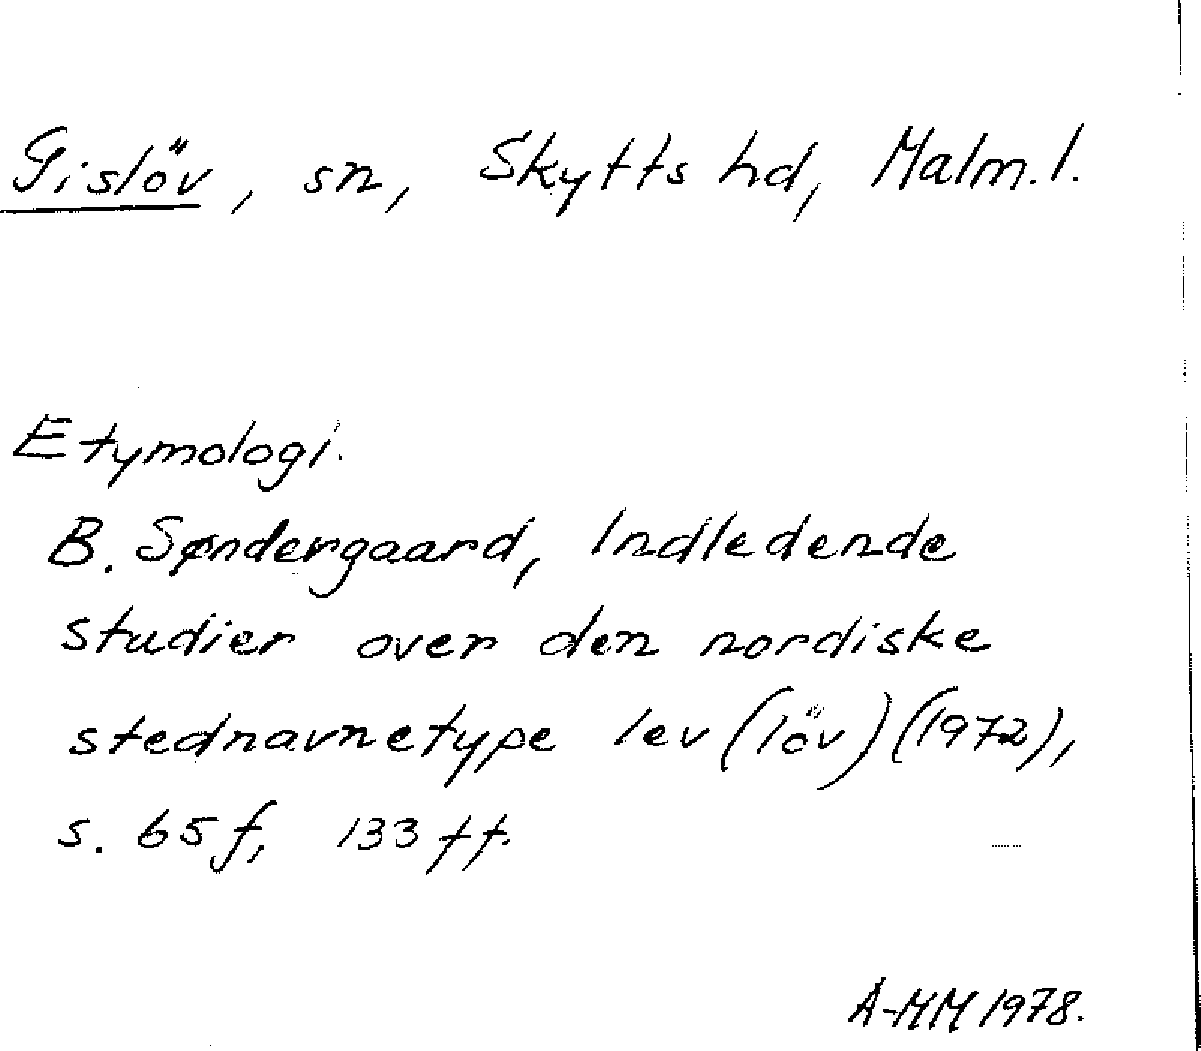 Gislöv, sn, Skytts hd, Malm. l.
Etymologi.
B. Søndergaard, Indledende
studier over den nordiske
stednavnetype lev (löv) (1972),
s. 65 f, 133 ff.
A-MM 1978.